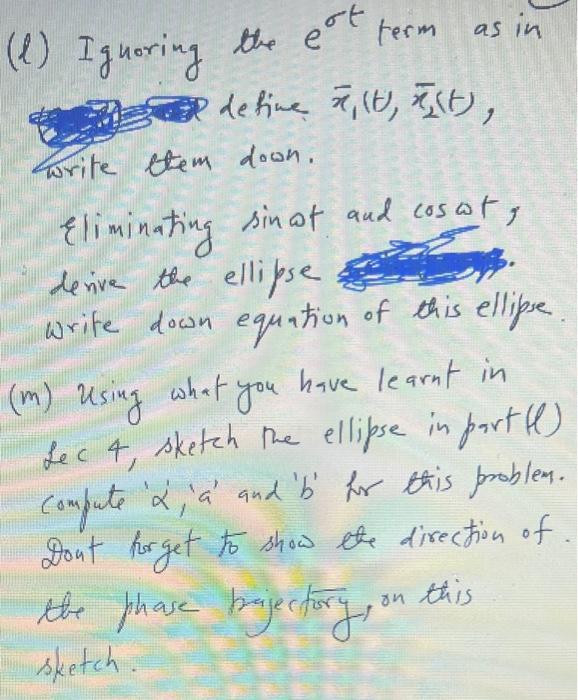 (l) Ignoring the e^σt term as in
define x̄₁(t), x̄₂(t),
write them down.
Eliminating sin ωt and cos ωt,
derive the ellipse
Write down equation of this ellipse.
(m) Using what you have learnt in
Lec 4, sketch the ellipse in part (l)
Compute 'α', 'a' and 'b' for this problem.
Dont forget to show the direction of
the phase trajectory, on this
sketch.